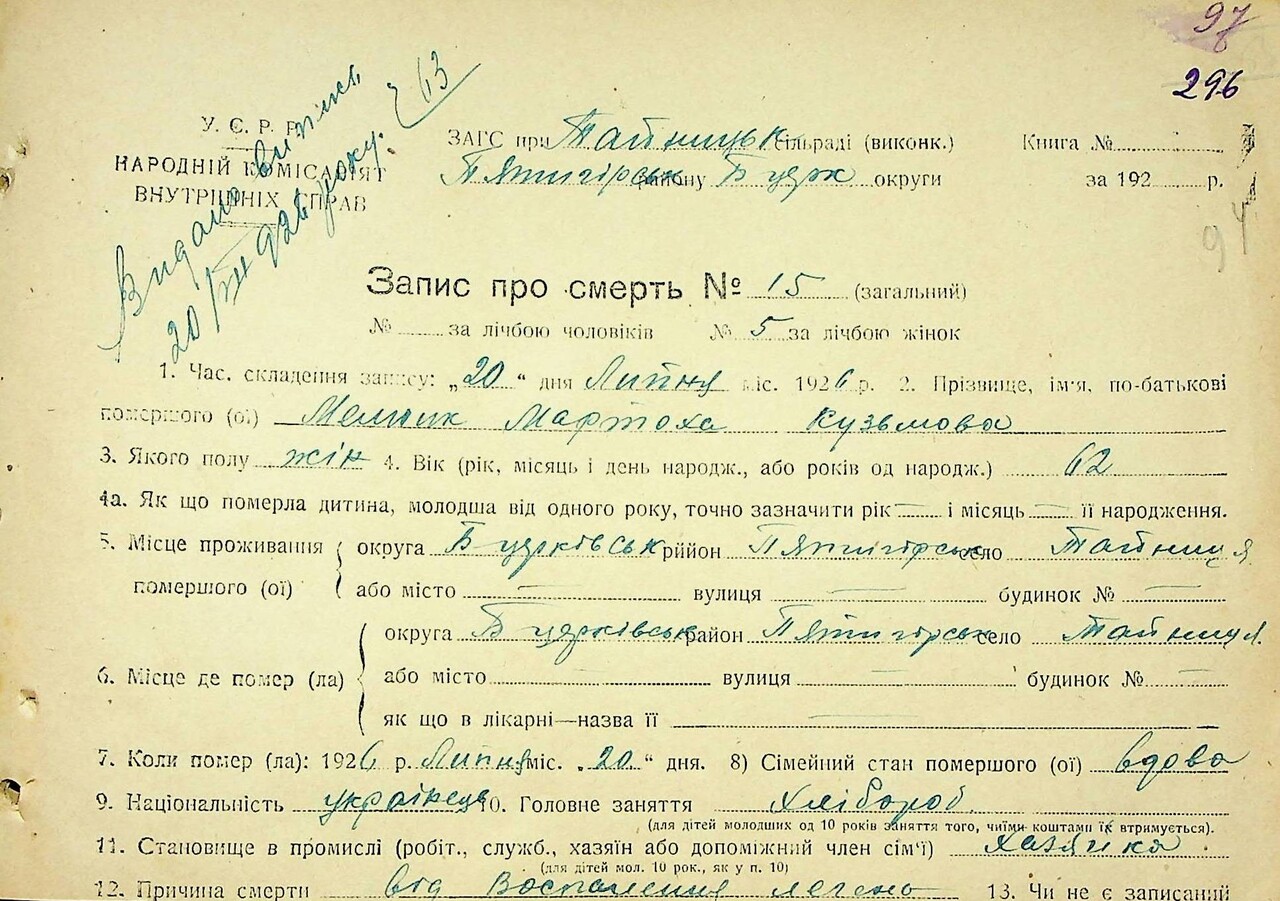 97
296
У. С. Р. Р.
НАРОДНІЙ КОМІСАРІЯТ
ВНУТРІШНІХ СПРАВ
Видано випись
20/VII 926 року.
63
ЗАГС при Тайницьк сільраді (виконк.) Книга №
Пятигірськ району Б церк округи за 192 р.
94
Запис про смерть № 15 (загальний)
№ за лічбою чоловіків № 5 за лічбою жінок
1. Час. складення запису: „20“ дня Липня міс. 1926 р. 2. Прізвище, ім'я, по-батькові
помершого (ої) Мельник Мартоха Кузьмова
3. Якого полу жін 4. Вік (рік, місяць і день народж., або років од народж.) 62
4а. Як що померла дитина, молодша від одного року, точно зазначити рік — і місяць — її народження.
5. Місце проживання округа Б церківськ рийон Пятигірськ село Тайниця
помершого (ої) або місто — вулиця — будинок № —
округа Б церківськ район Пятигірськ село Тайниця
6. Місце де помер (ла) або місто — вулиця — будинок № —
як що в лікарні—назва її —
7. Коли помер (ла): 1926 р. Липня міс. „20“ дня. 8) Сімейний стан помершого (ої) вдова
9. Національність українець 10. Головне заняття Хлібороб
(для дітей молодших од 10 років заняття того, чиїми коштами їх втримується).
11. Становище в промислі (робіт., служб., хазяїн або допоміжний член сім'ї) хазяйка
(для дітей мол. 10 рок., як у п. 10)
12. Причина смерти від воспаления легень 13. Чи не є записаний